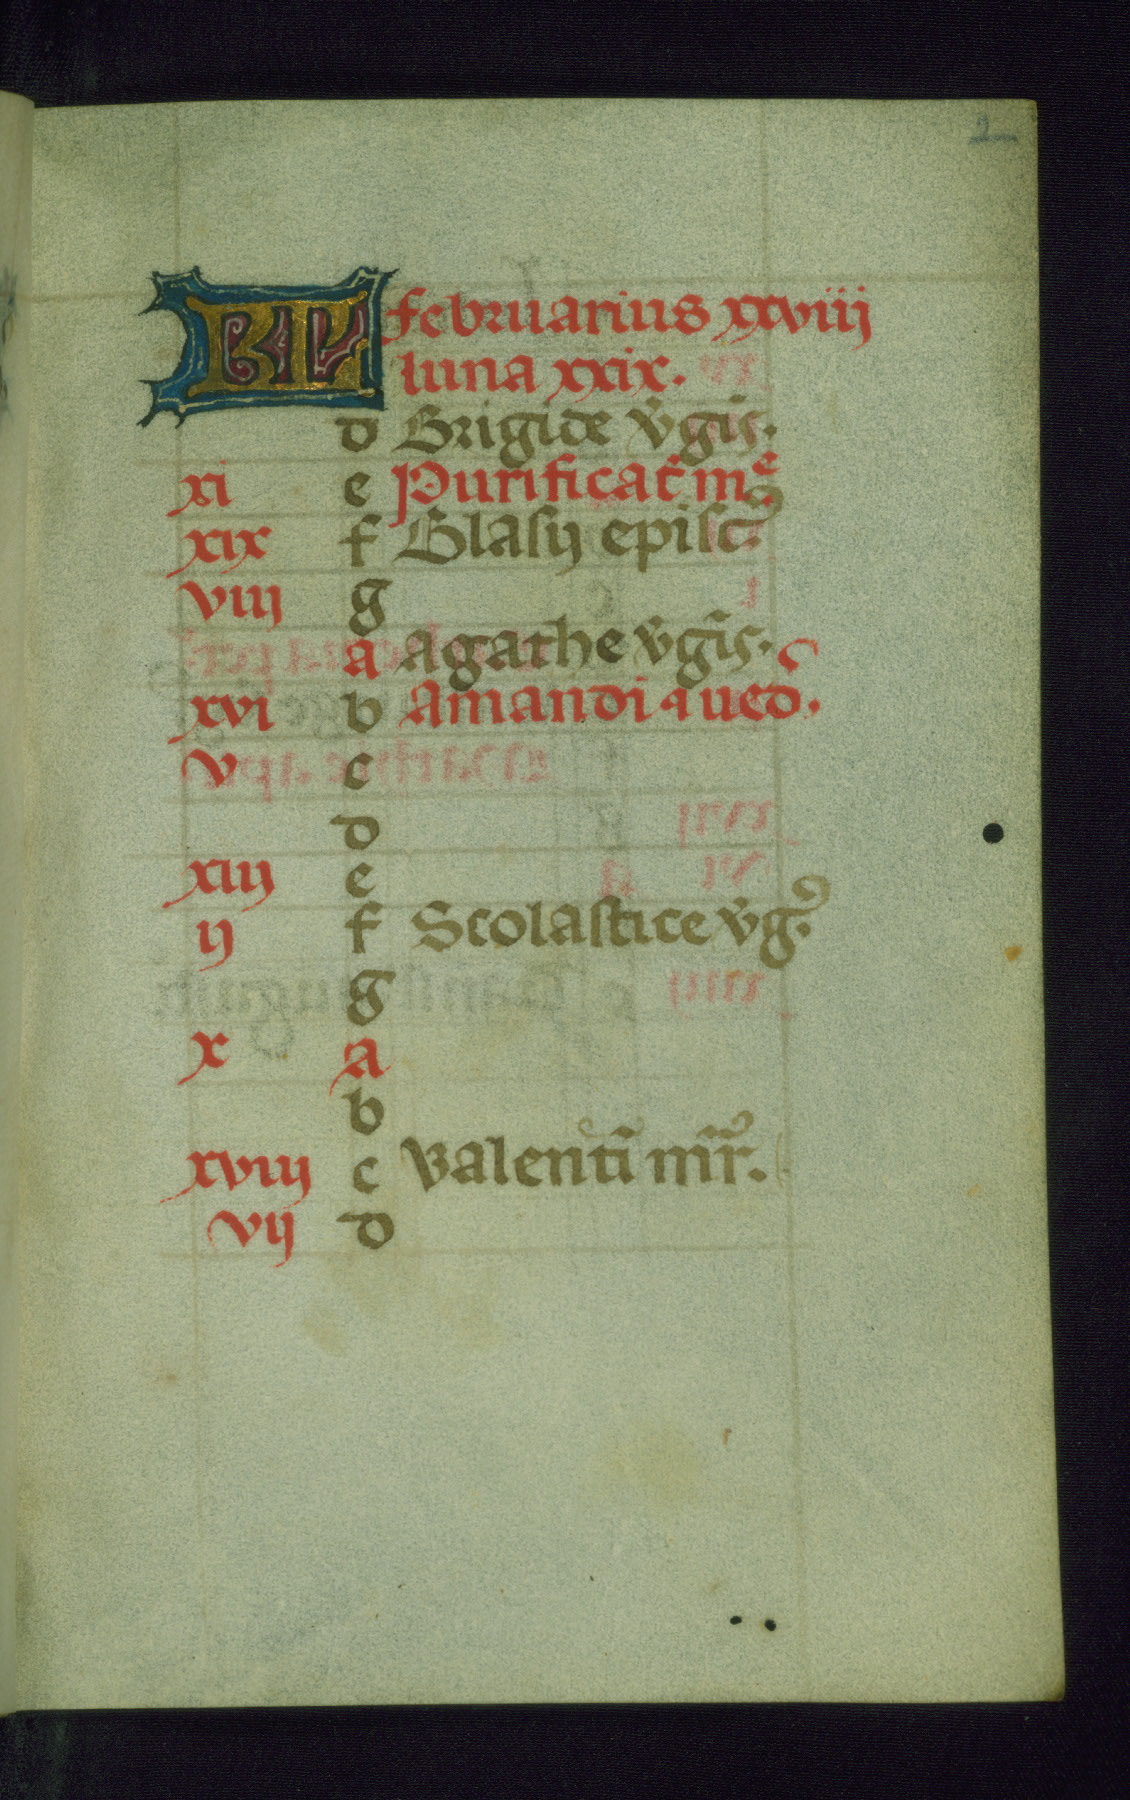 2
KL februarius xxviii
luna xxix.
d Brigide v̄gīs.
xi e Purificat̄ mᵉ
xix f Blasij episcꝰ
viij g
a Agathe v̄gīs.
xvi b Amandi ⁊ ued̄.
v c
d
xiij e
ij f Scolastice v̄gꝰ.
g
x a
b
xviij c Valentī mr̄.
vij d